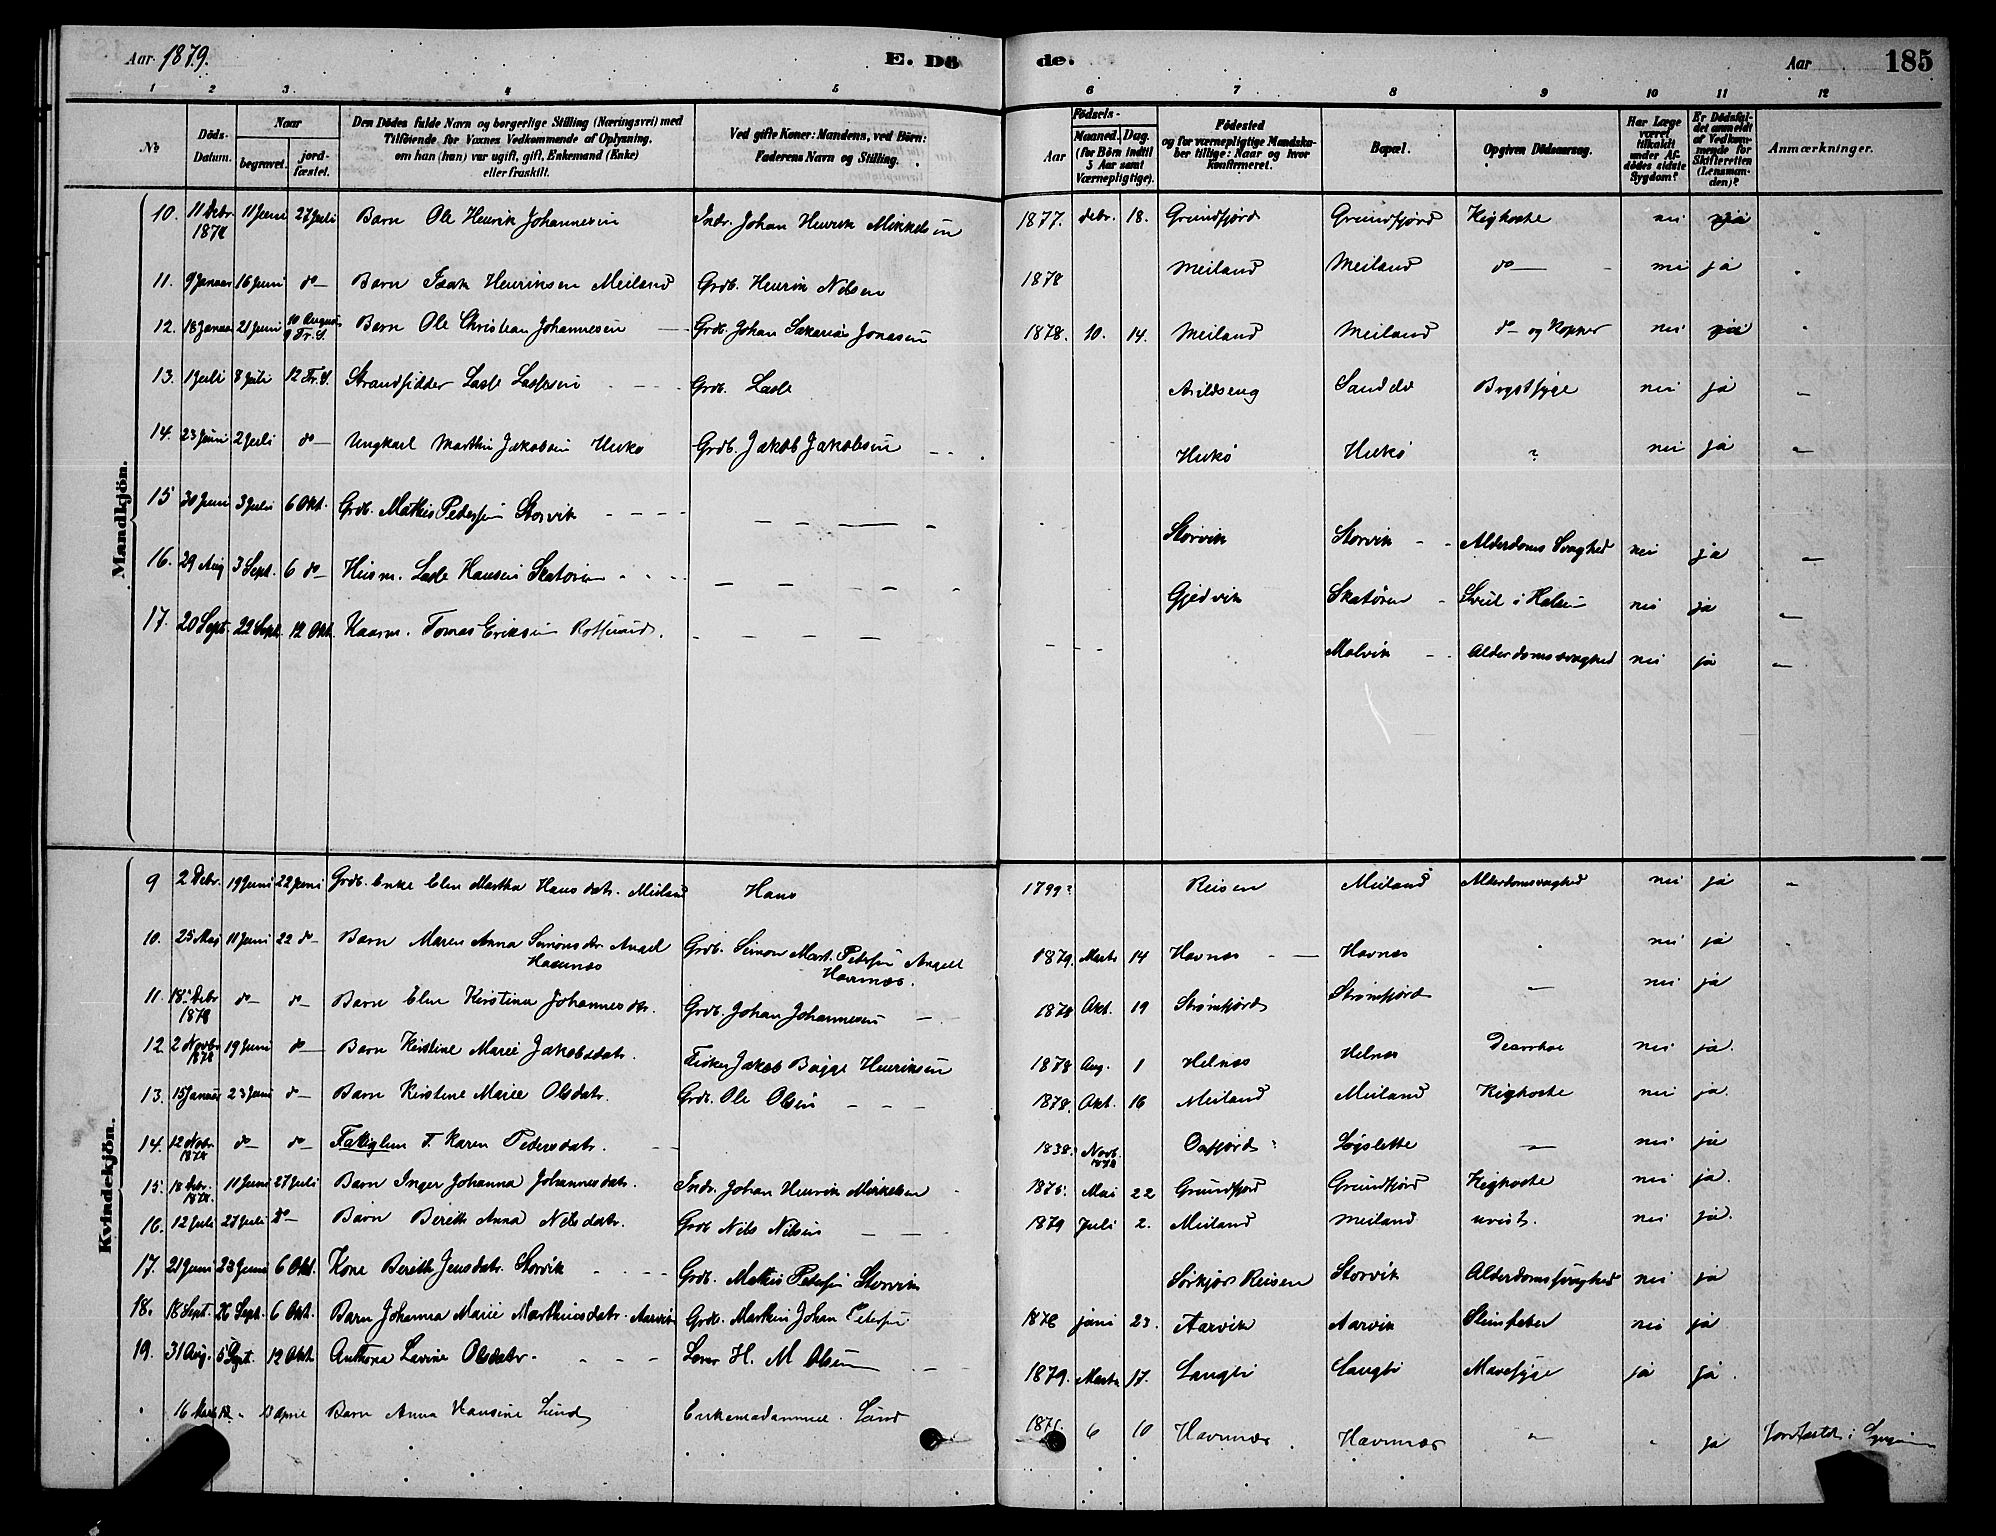 Aar 1879. E. Dö de. Aar 185
1 2 3. 4 5 6 7 8 9 10 11 12
No Döds-Datum. Naar begravet. jordfæstet. Den Dödes fulde Navn og borgerlige Stilling (Næringsvei) med Tilföiende for Voxnes Vedkommende af Oplysning, om han (hun) var ugift, gift, Enkemand (Enke) eller fraskilt. Ved gifte Koner: Mandens, ved Börn: Faderens Navn og Stilling. Födsels- Aar Maaned. Dag. (for Börn indtil 5 Aar samt Værnepligtige). Födested og for værnepligtige Mandskaber tillige: Naar og hvor konfirmeret. Bopæl. Opgiven Dödsaarsag. Har Læge været tilkaldt under Afdödes sidste Sygdom? Er Dödsfaldet anmeldt af Vedkommende for Skifteretten (Lensmanden)? Anmærkninger.
Mandkjön.
10. 11 Debr 1878 11 Juni 27 Juli Barn Ole Henrik Johannesen Indr. Johan Henrik Mikkelsen 1877. debr. 18. Grundfjord Grundfjord Kighoste nei ja "
11. 9 Januar 16 Juni do Barn Isak Henriksen Meiland Grdb. Henrik Nilsen 1878 Meiland Meiland do nei ja "
12. 18 Januar 21 Juni 10 August 9 Tr. S. Barn Ole Christian Johannesen Grdb. Johan Sakarias Jonasen 1878. 10. 14. Meiland Meiland do og Kopper nei ja "
13. 1 Juli 8 Juli 12 Tr. S Strandsidder Lasse Lassesen Grdb. Lasse Arildseng Brystsyge nei ja "
14. 23 Juni 2 Juli do Ungkarl Marthin Jakobsen Grdb. Jakob Jakobsen ? nei ja "
15 30 Juni 3 Juli 6 Okt. Grdb. Mathis Petersen Storvik Storvik Storvik Alderdoms Svaghed nei ja "
16. 29 Aug 3 Sept. 6 do Husm. Lasse Hansen Skatøren Gjedvik Skatøren i Halsen nei ja "
17. 20 Sept. 22 Sept. 12 Okt. Kaarm. Tomas Eriksen Rotsund. Malvik Alderdomssvaghed nei ja "
Kvindekjön.
9 2 Debr. 19 Juni 22 Juni Grdb. Enke Elen Martha Hansdatr. Meiland Hans 1799? Reisen Meiland Alderdomsvaghed nei ja "
10. 25 Mai 11 Juni 22 do Barn Maren Anna Simonsdr. Angel Havnnæs Grdb. Simon Mart. Petersen Angell Havnnæs. 1879. Marts 14 Havnæs Havnæs " nei ja "
11. 18 Debr 1878 do do Barn Elen Kirstina Johannesdatr. Grdb. Johan Johannesen 1878 Okt. 19 Strømfjord Strømfjord " nei ja
12 2 Novbr 1878 19 Juni do Barn Kirstine Marie Jakobsdatr. Fisker Jakob Bagge Henriksen 1878 Aug. 1 Helnæs Helnæs Diarrhoe nei ja.
13. 15 Januar 23 Juni do Barn Kirstine Marie Olsdatr. Grdb. Ole Olsen 1878. Okt. 16 Meiland Meiland Kighoste nei ja.
14. 12 Novbr 1878 do do Fattiglem F. Karen Pedersdatr. 1838. Novb. 1878 Oxfjord ? Løgslette " nei ja
15. 18 Debr. 1878. 11 Juni 27 Juli Barn Inger Johanna Johannesdatr. Indr. Johan Henrik Mikkelsen 1875. Mai 22 Grundfjord Grundfjord Kighoste nei ja.
16. 12 Juli 27 Juli do Barn Bereth Anna Nilsdatr. Grdb Nils Nilsen 1879 Juli 2. Meiland Meiland uvist. nei ja.
17. 21 Juni 23 Juni 6 Okt Kone Bereth Jensdatr. Storvik Grdb. Mathis Petersen Storvik Sørkjos Reisen Storvik Alderdomssvaghed nei ja
18. 18 Sept. 26 Sept. 6 Okt. Barn Johanna Marie Marthinsdatr. Aarvik Grdb. Marthin Johan Petersen 1878 juni 23. Aarvik Aarvik nei ja
19. 31 Aug. 5 Sept. 12 Okt Anthona Lavine Olsdatr. H. M Olsen 1879. Marts 17. Mavesyge ja ja.
" 16 Marts " 13 April Barn Anna Hansine Lund Enkemadamme. Lund 6 10 Havnnæs. Havnnæs " " ja Jordfæstet i Lyngen